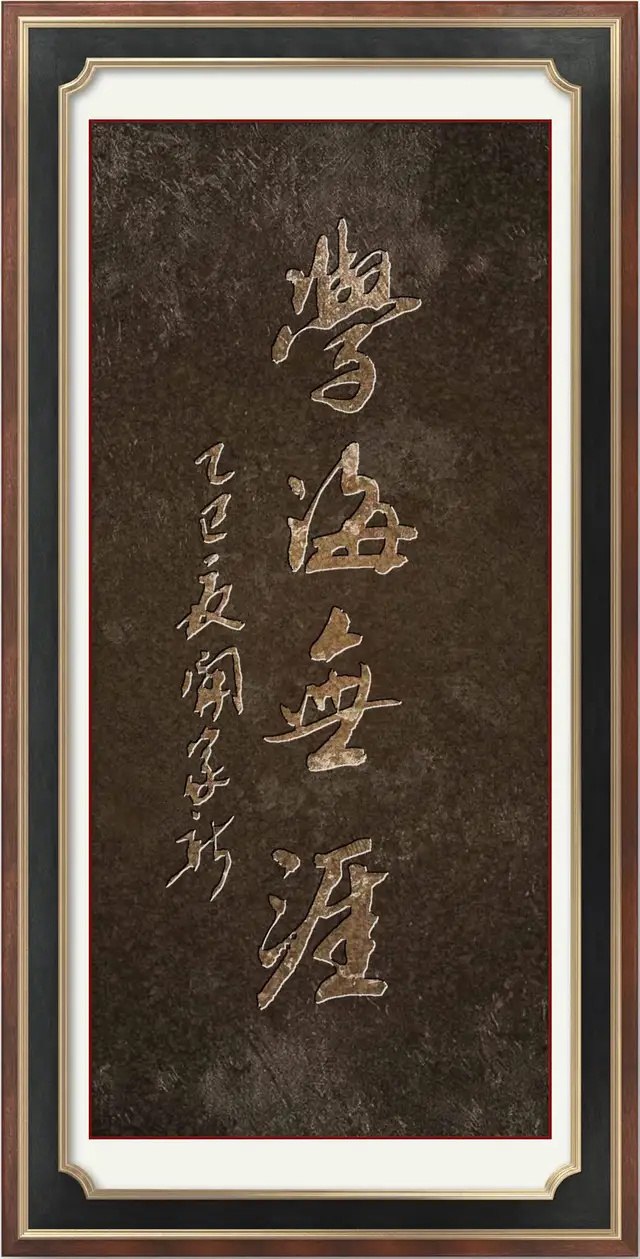 學海無涯
乙巳夏開家新